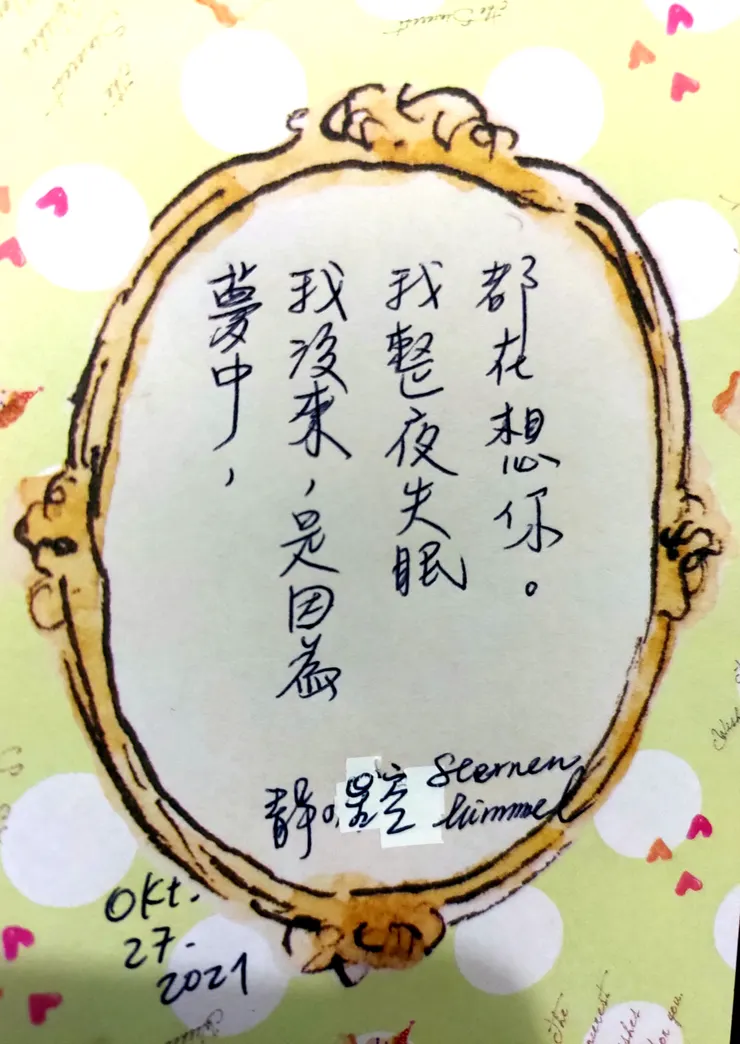 夢中，
我沒來，是因為
我整夜失眠
都在想你。
靜。星空
Sternen
himmel
Okt.
27.
2021